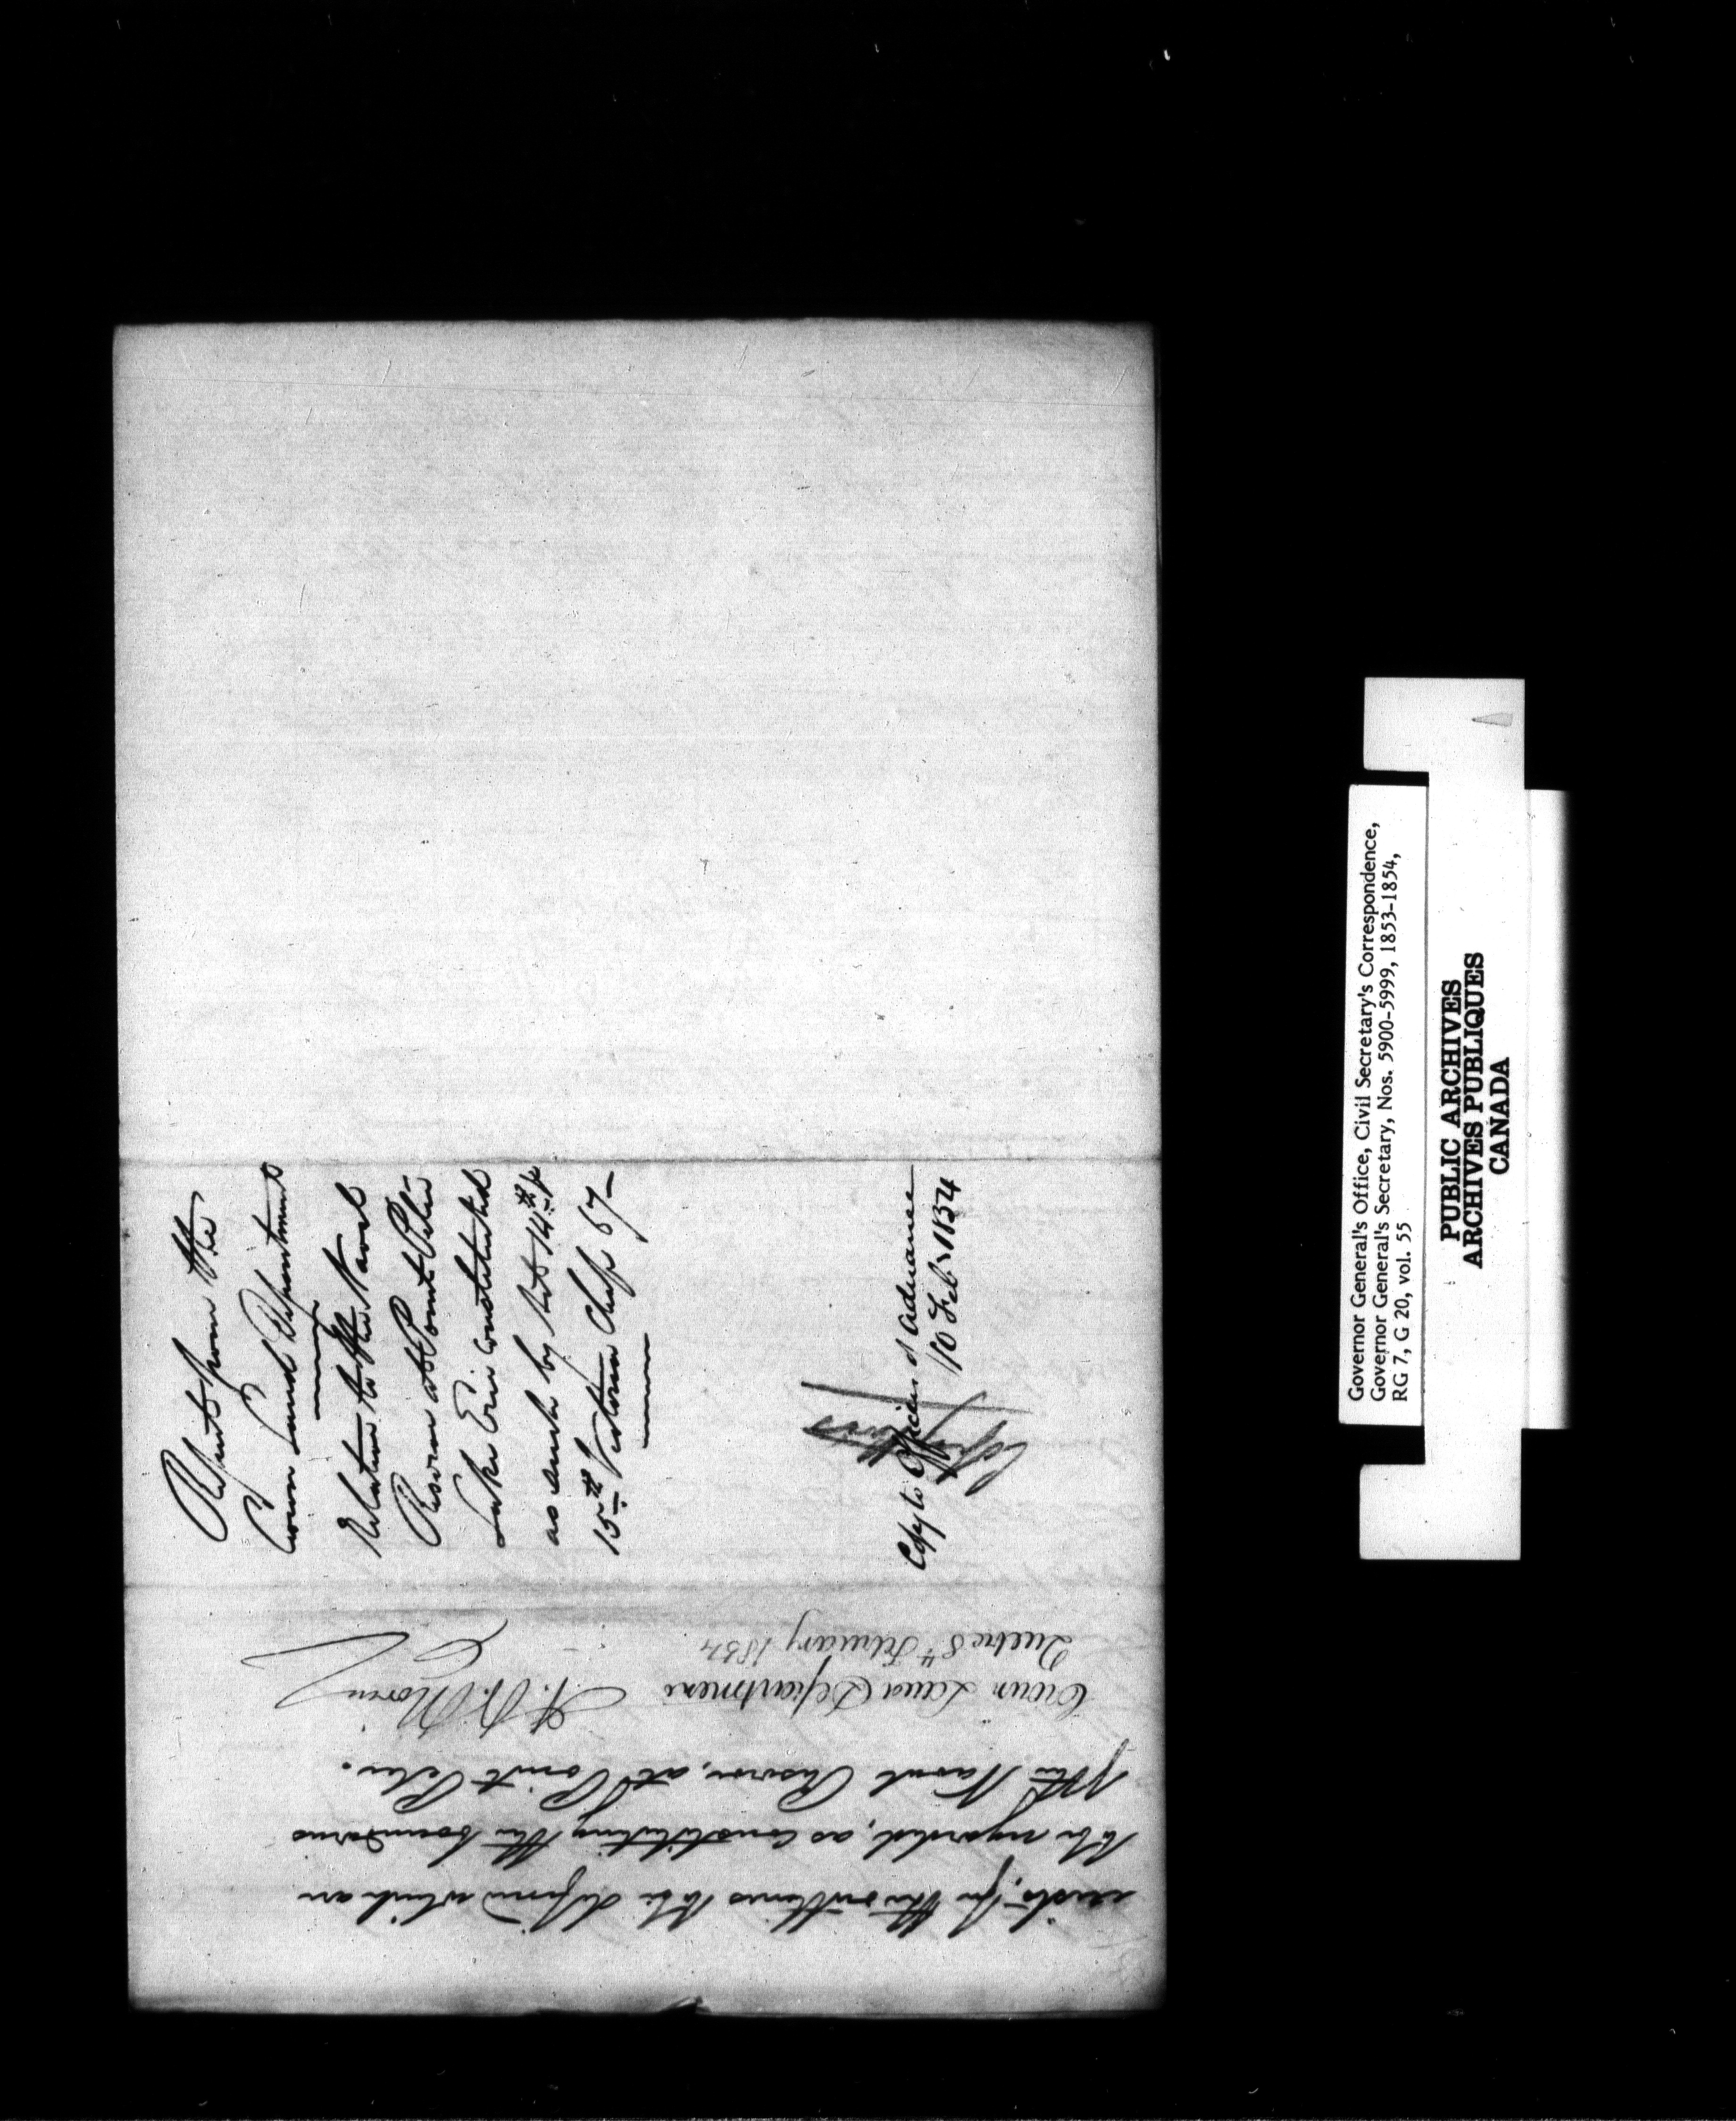 exists, for the outlines to be defined which are
to be regarded, as constituting the boundaries
of the Naval Reserve, at Point Pelee.
Crown Land Department
A. N. Morin
Quebec 8th February 1854
Report from the
Crown Land Department
Relative to the Naval
Reserve at Point Pelée
Lake Erie constituted
as such by Act 14th &
15th Victoria Chap 67
Copy to Officers of Ordnance
10 Feby 1854
Copy
Governor General's Office, Civil Secretary's Correspondence,
Governor General's Secretary, Nos. 5900-5999, 1853-1854,
RG 7, G 20, vol. 55
PUBLIC ARCHIVES
ARCHIVES PUBLIQUES
CANADA